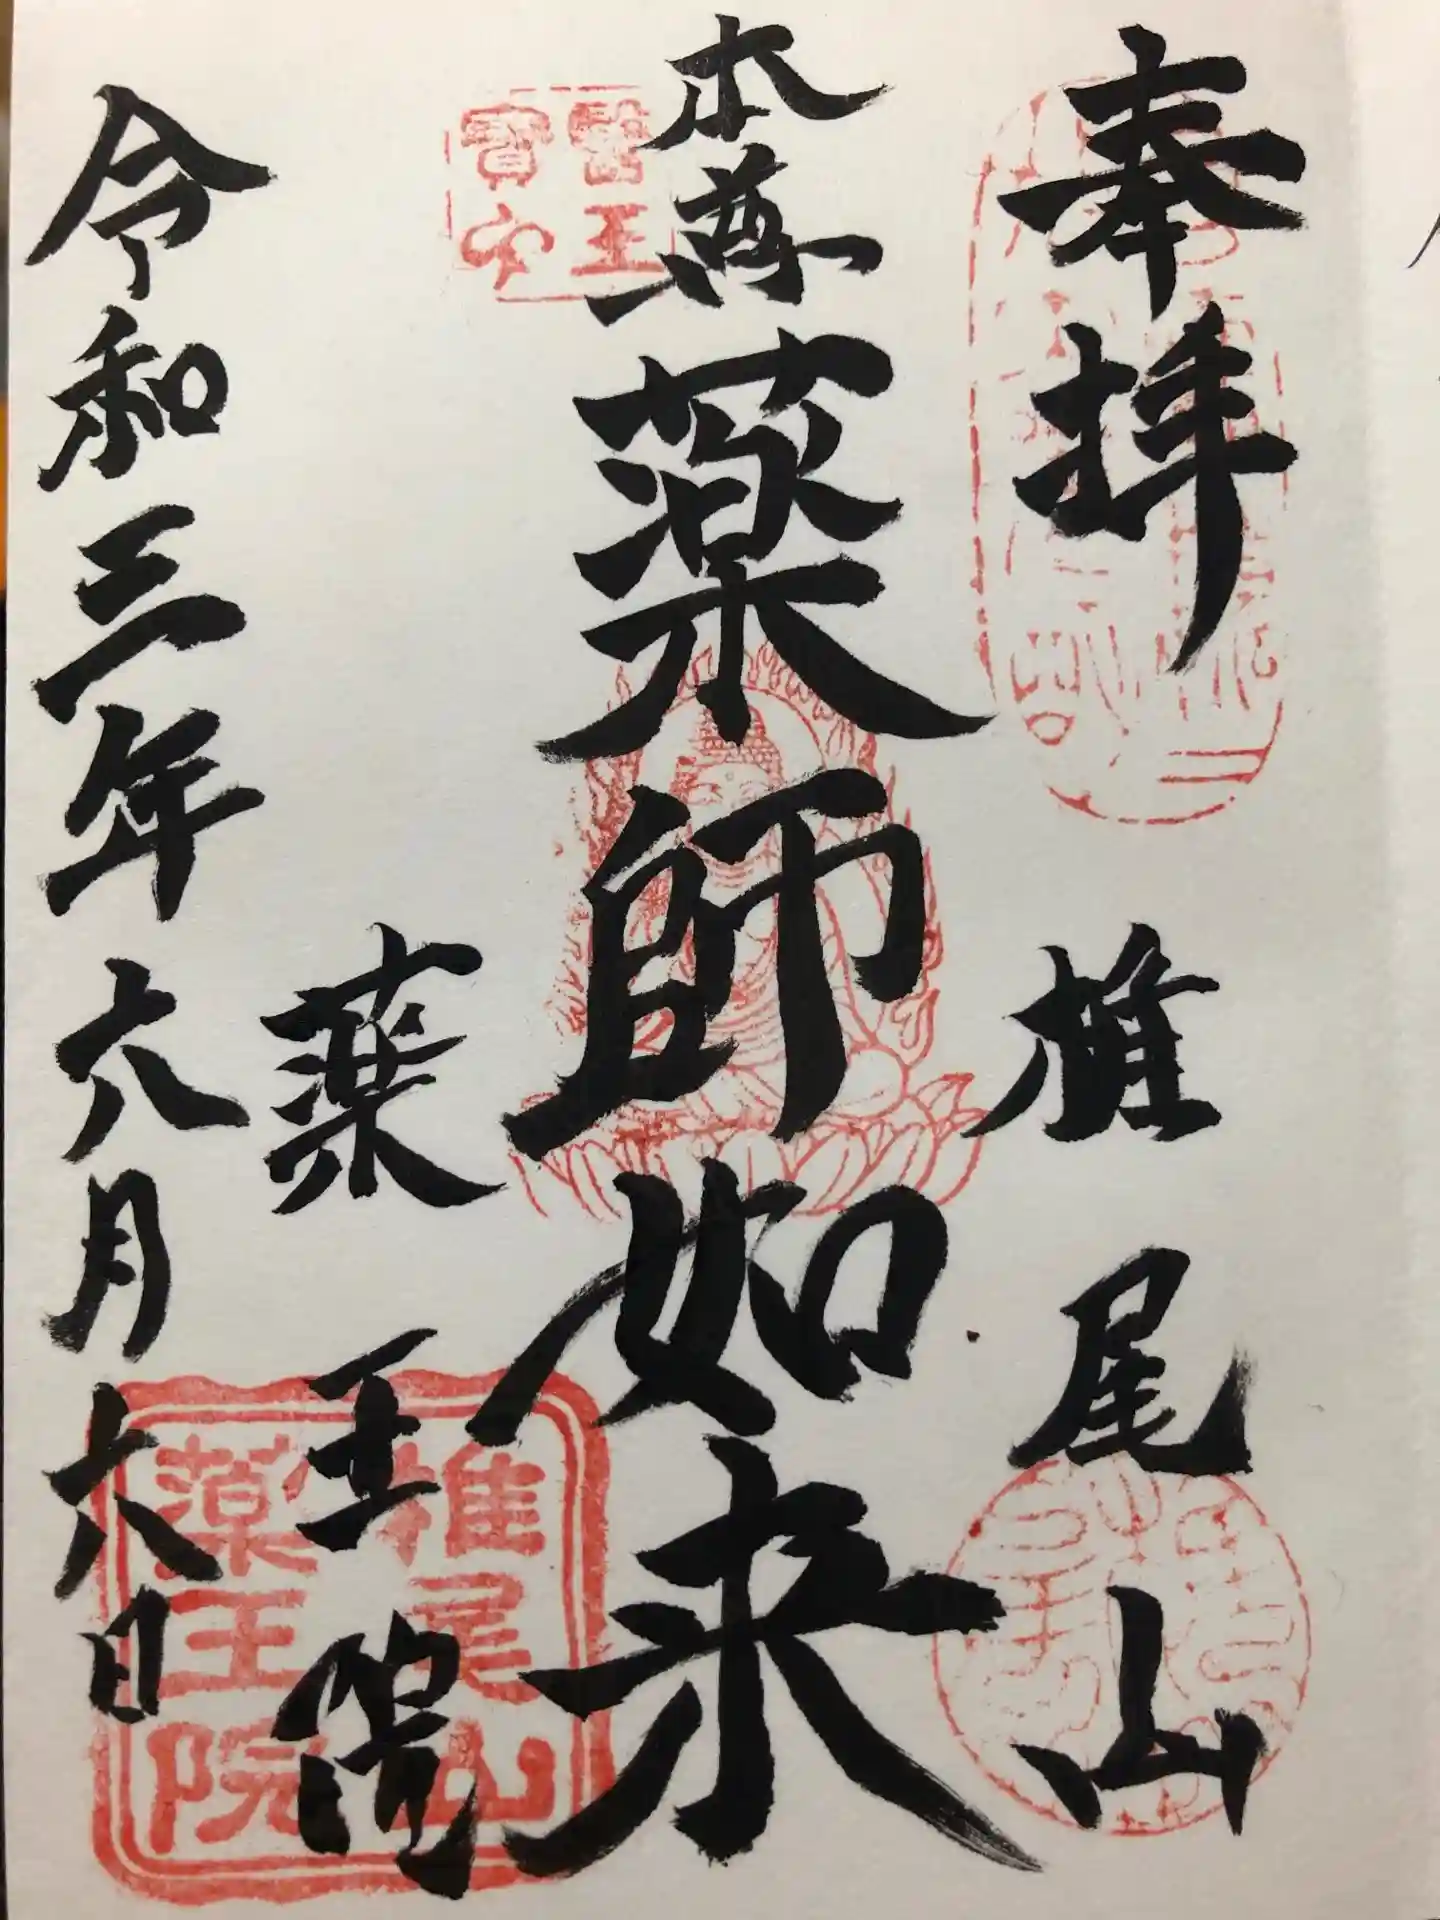 奉拝
椎尾山
本尊
薬師如来
薬王院
令和三年六月六日
醫王
寳印
椎尾山
薬王院